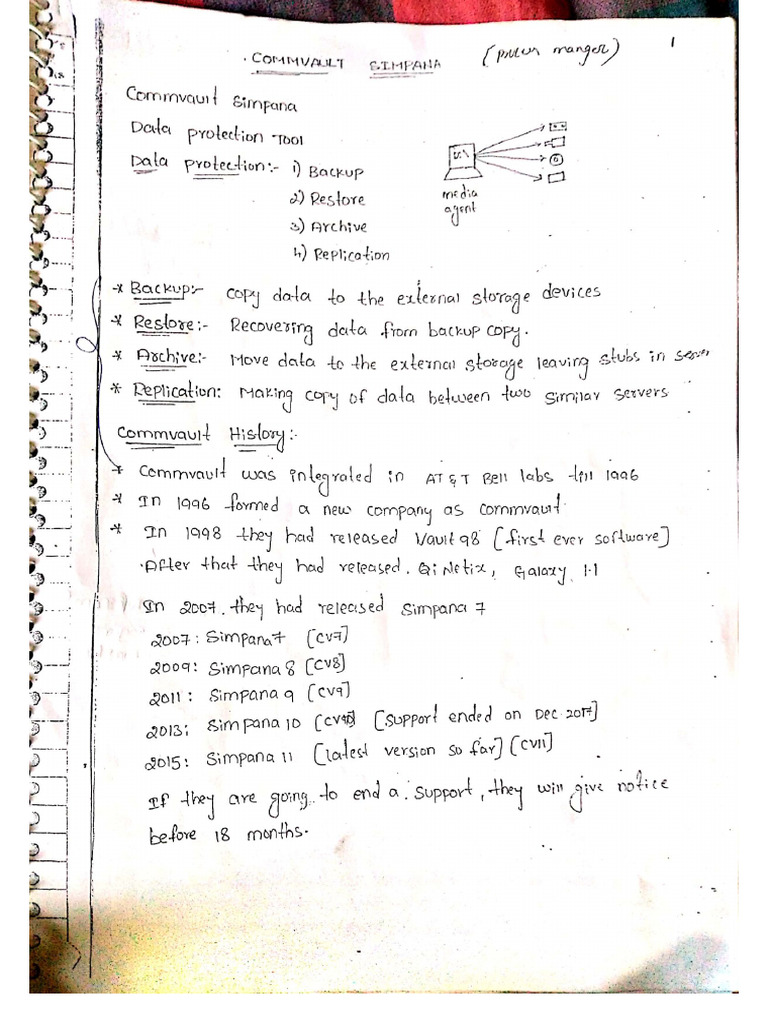 COMMVAULT SIMPANA (process manger) 1
Commvault Simpana
Data protection Tool
Data protection:- 1) Backup
2) Restore
3) Archive
4) Replication
media
agent
* Backup:- Copy data to the external storage devices
* Restore:- Recovering data from backup copy.
* Archive:- Move data to the external storage leaving stubs in server
* Replication: Making copy of data between two similar servers
Commvault History:-
* Commvault was integrated in AT&T Bell labs till 1996
* In 1996 formed a new company as commvault.
* In 1998 they had released Vault 98 [first ever software]
After that they had released. QiNetix, Galaxy 1.1
In 2007. they had released Simpana 7
2007: Simpana 7 [CV7]
2009: Simpana 8 [CV8]
2011: Simpana 9 [CV9]
2013: Simpana 10 [CV10] [Support ended on Dec 2017]
2015: Simpana 11 [latest version so far] [CV11]
If they are going to end a support, they will give notice
before 18 months.